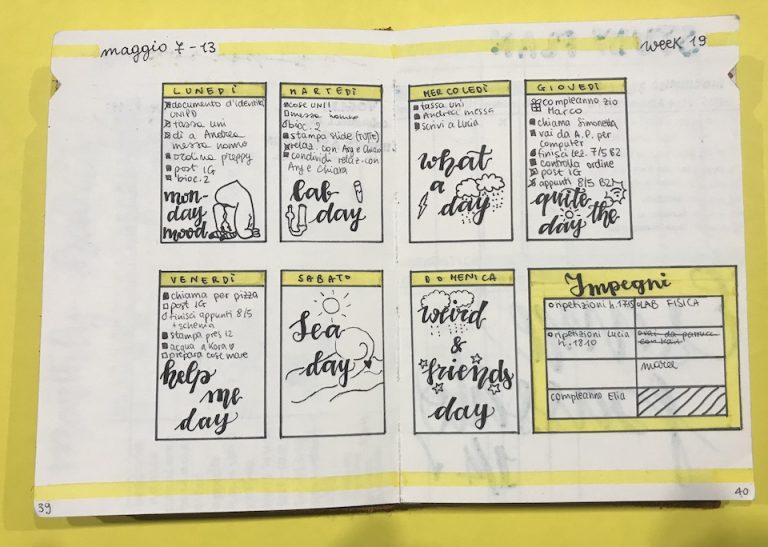 maggio 7-13
week 19
LUNEDÌ
documento d'identità
UNIPD
tassa uni
di a Andrea
messa nonno
ordina preppy
post IG
bioc. 2
mon-
day
mood
MARTEDÌ
cose UNI!
messa nonno
bioc. 2
stampa slide (TUTTE)
relaz. con Asy e Chiara
condividi relaz. con
Asy e Chiara
lab
day
MERCOLEDÌ
tassa uni
Andrea messa
scrivi a Lucia
what
a
day
GIOVEDÌ
compleanno zio
Marco
chiama Simonetta
vai da A.P. per
computer
finisci lez. 7/5 B2
controlla ordine
post IG
appunti 8/5 B2
quite
the
day
VENERDÌ
chiama per pizza
post IG
finisci appunti 8/5
+ schemia
stampa pres 12
acqua a Kora
prepara cose mare
help
me
day
SABATO
Sea
day
DOMENICA
weird
&
friends
day
Impegni
ripetizioni h. 17.15
LAB FISICA
ripetizioni Lucia
h. 18.10
vai da parrucc.
mare!
compleanno Elia
39
40